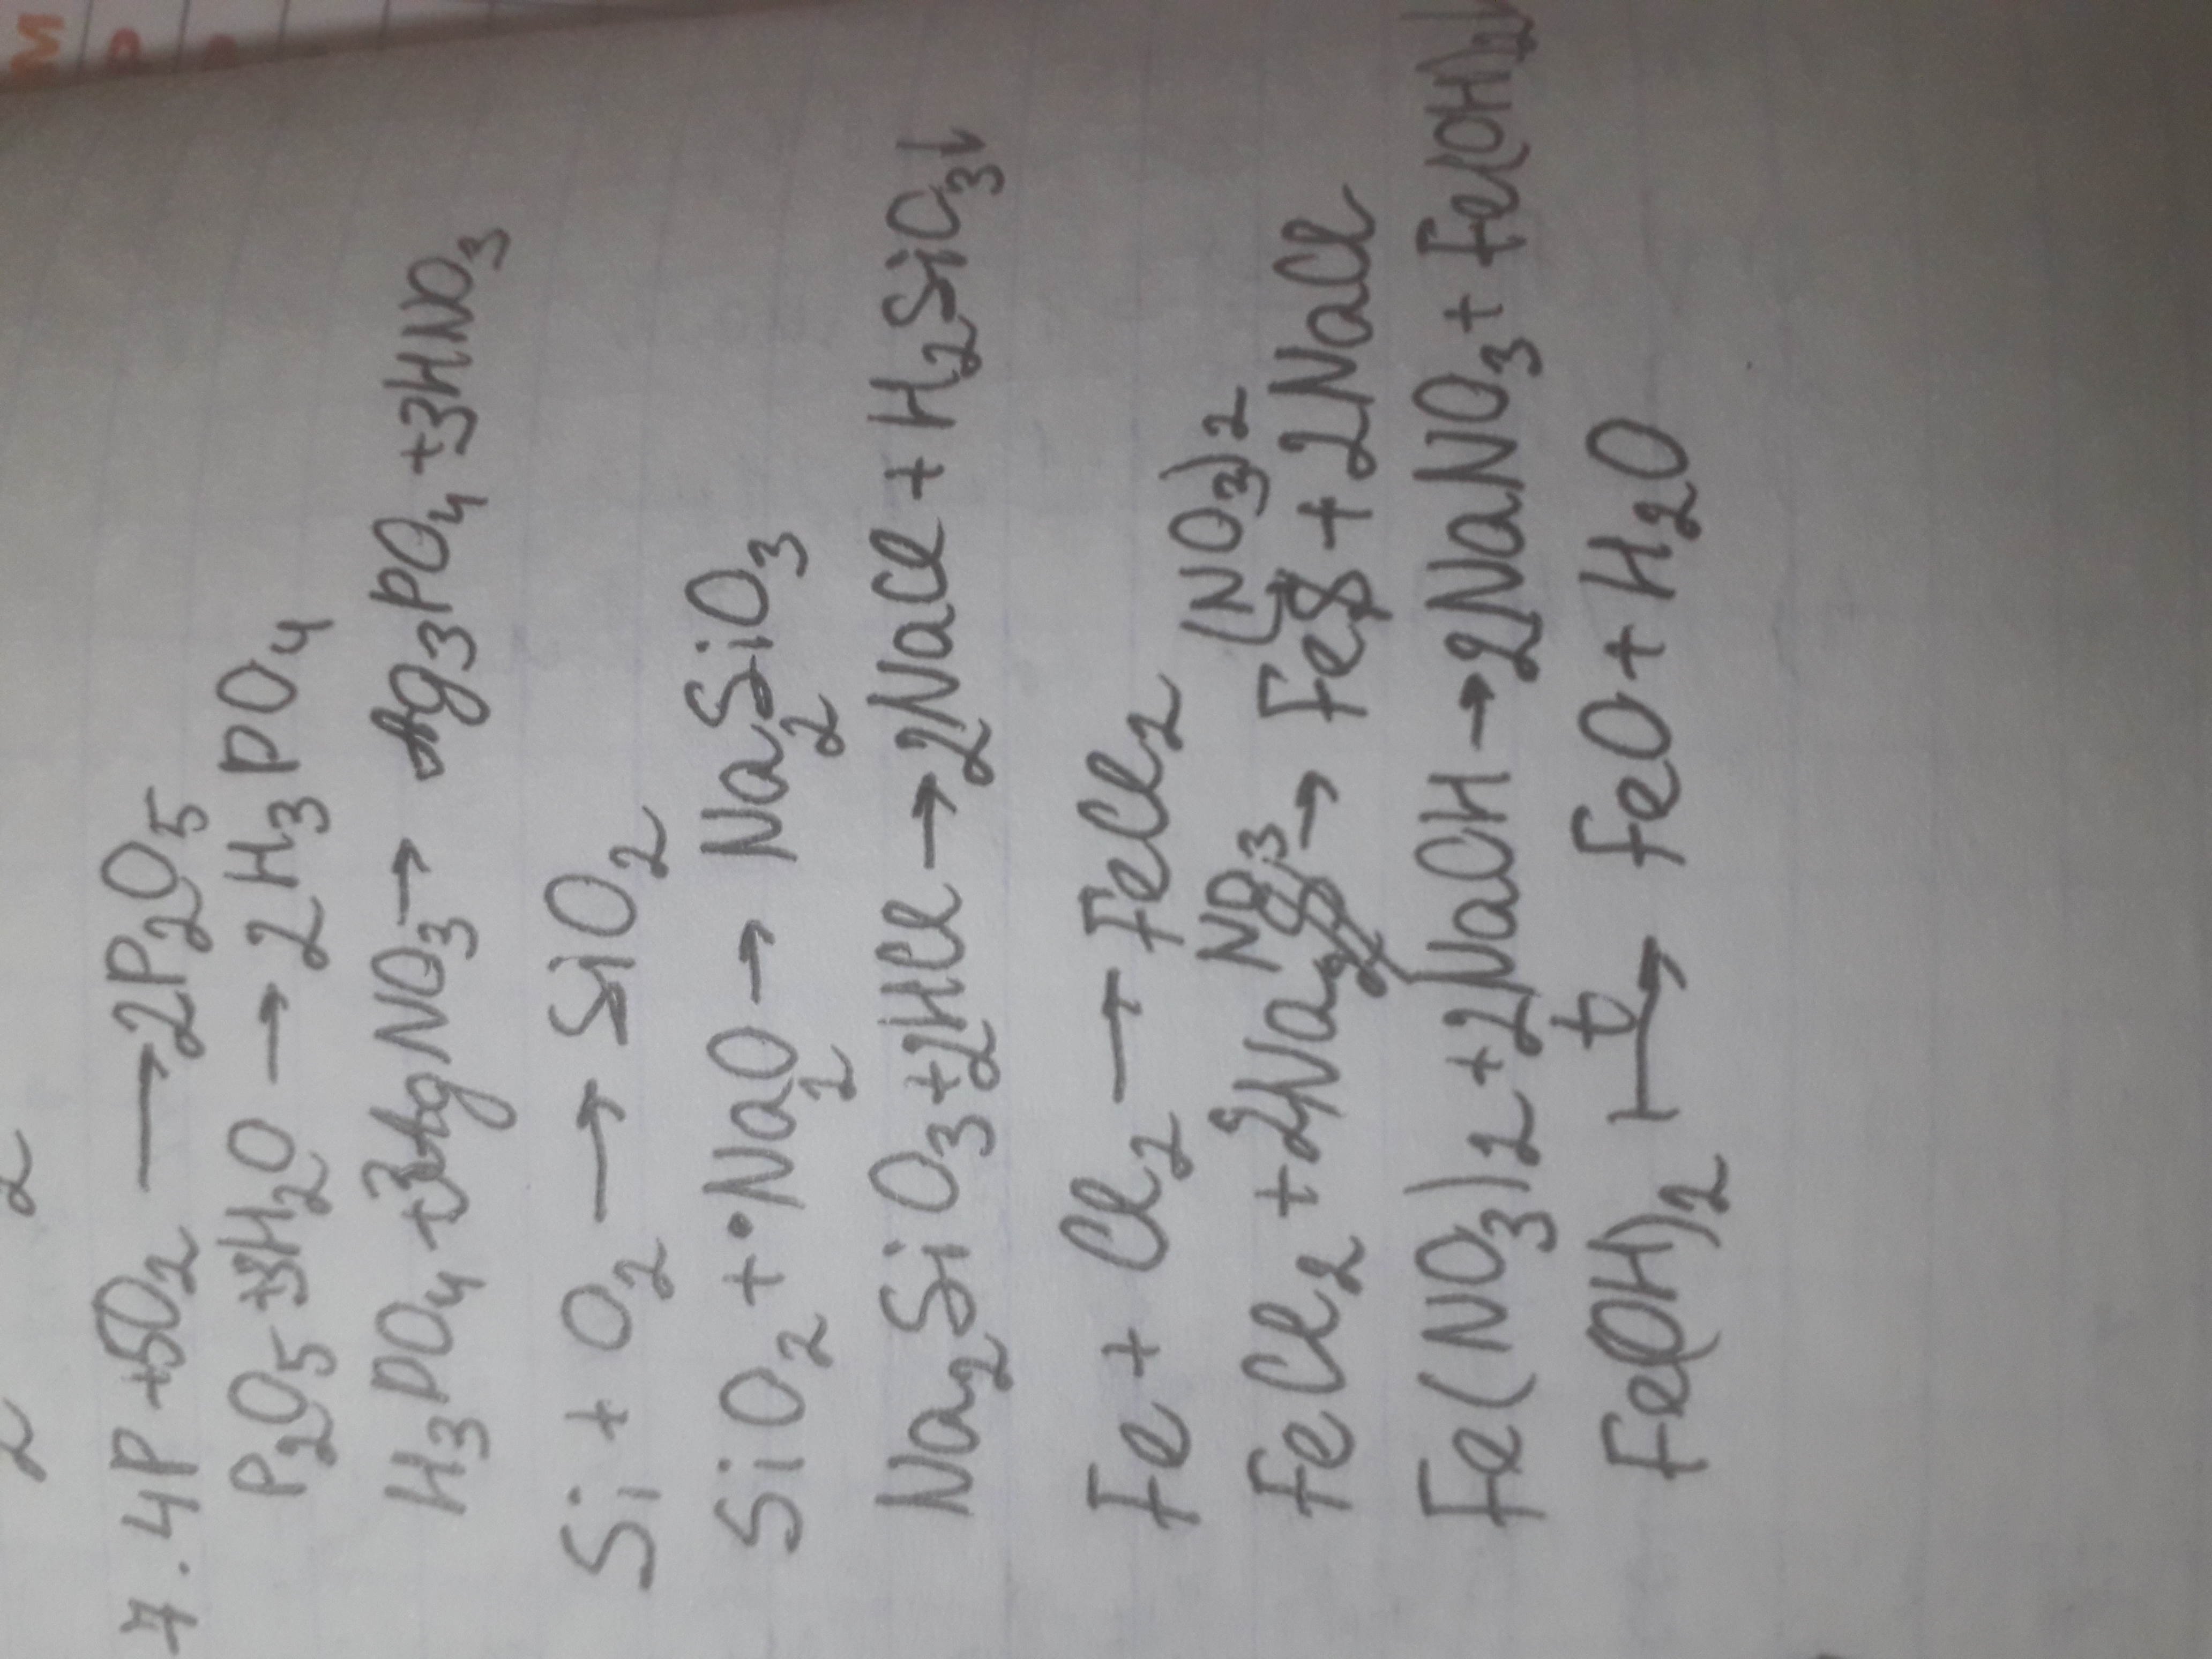 2 2
7. 4P + 5O₂ → 2P₂O₅
P₂O₅ + 3H₂O → 2H₃PO₄
H₃PO₄ + 3AgNO₃ → Ag₃PO₄ + 3HNO₃
Si + O₂ → SiO₂
SiO₂ + Na₂O → Na₂SiO₃
Na₂SiO₃ + 2HCl → 2NaCl + H₂SiO₃↓
Fe + Cl₂ → FeCl₂
FeCl₂ + 2NaNO₃ → Fe(NO₃)₂ + 2NaCl
Fe(NO₃)₂ + 2NaOH → 2NaNO₃ + Fe(OH)₂↓
Fe(OH)₂ t→ FeO + H₂O